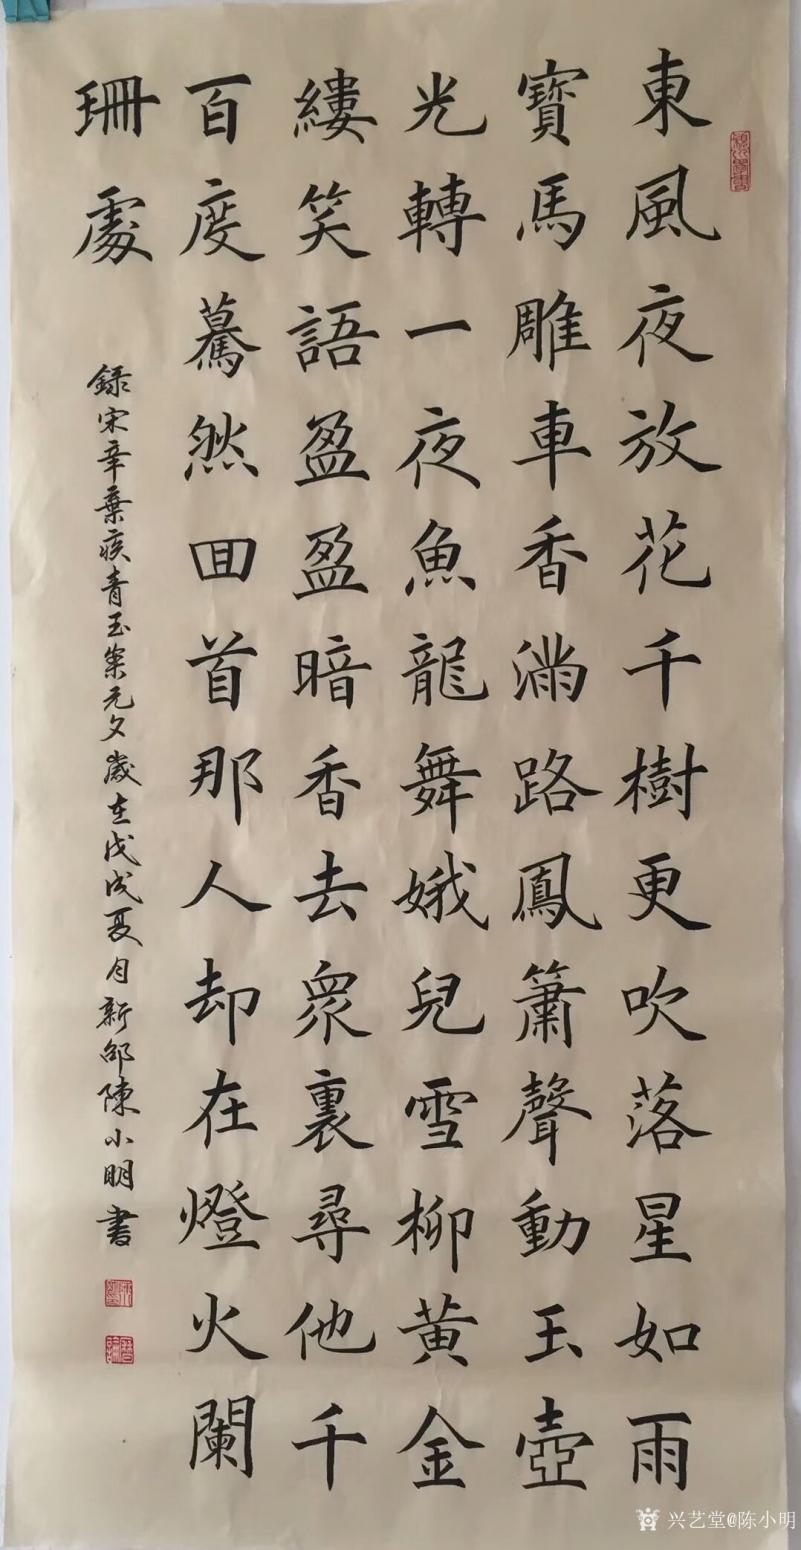 東風夜放花千樹更吹落星如雨
寶馬雕車香滿路鳳簫聲動玉壺
光轉一夜魚龍舞娥兒雪柳黄金
縷笑語盈盈暗香去衆裏尋他千
百度驀然回首那人却在燈火闌
珊處
録宋辛棄疾青玉案元夕歲在戊戌夏月新邵陳小明書
兴艺堂@陈小明